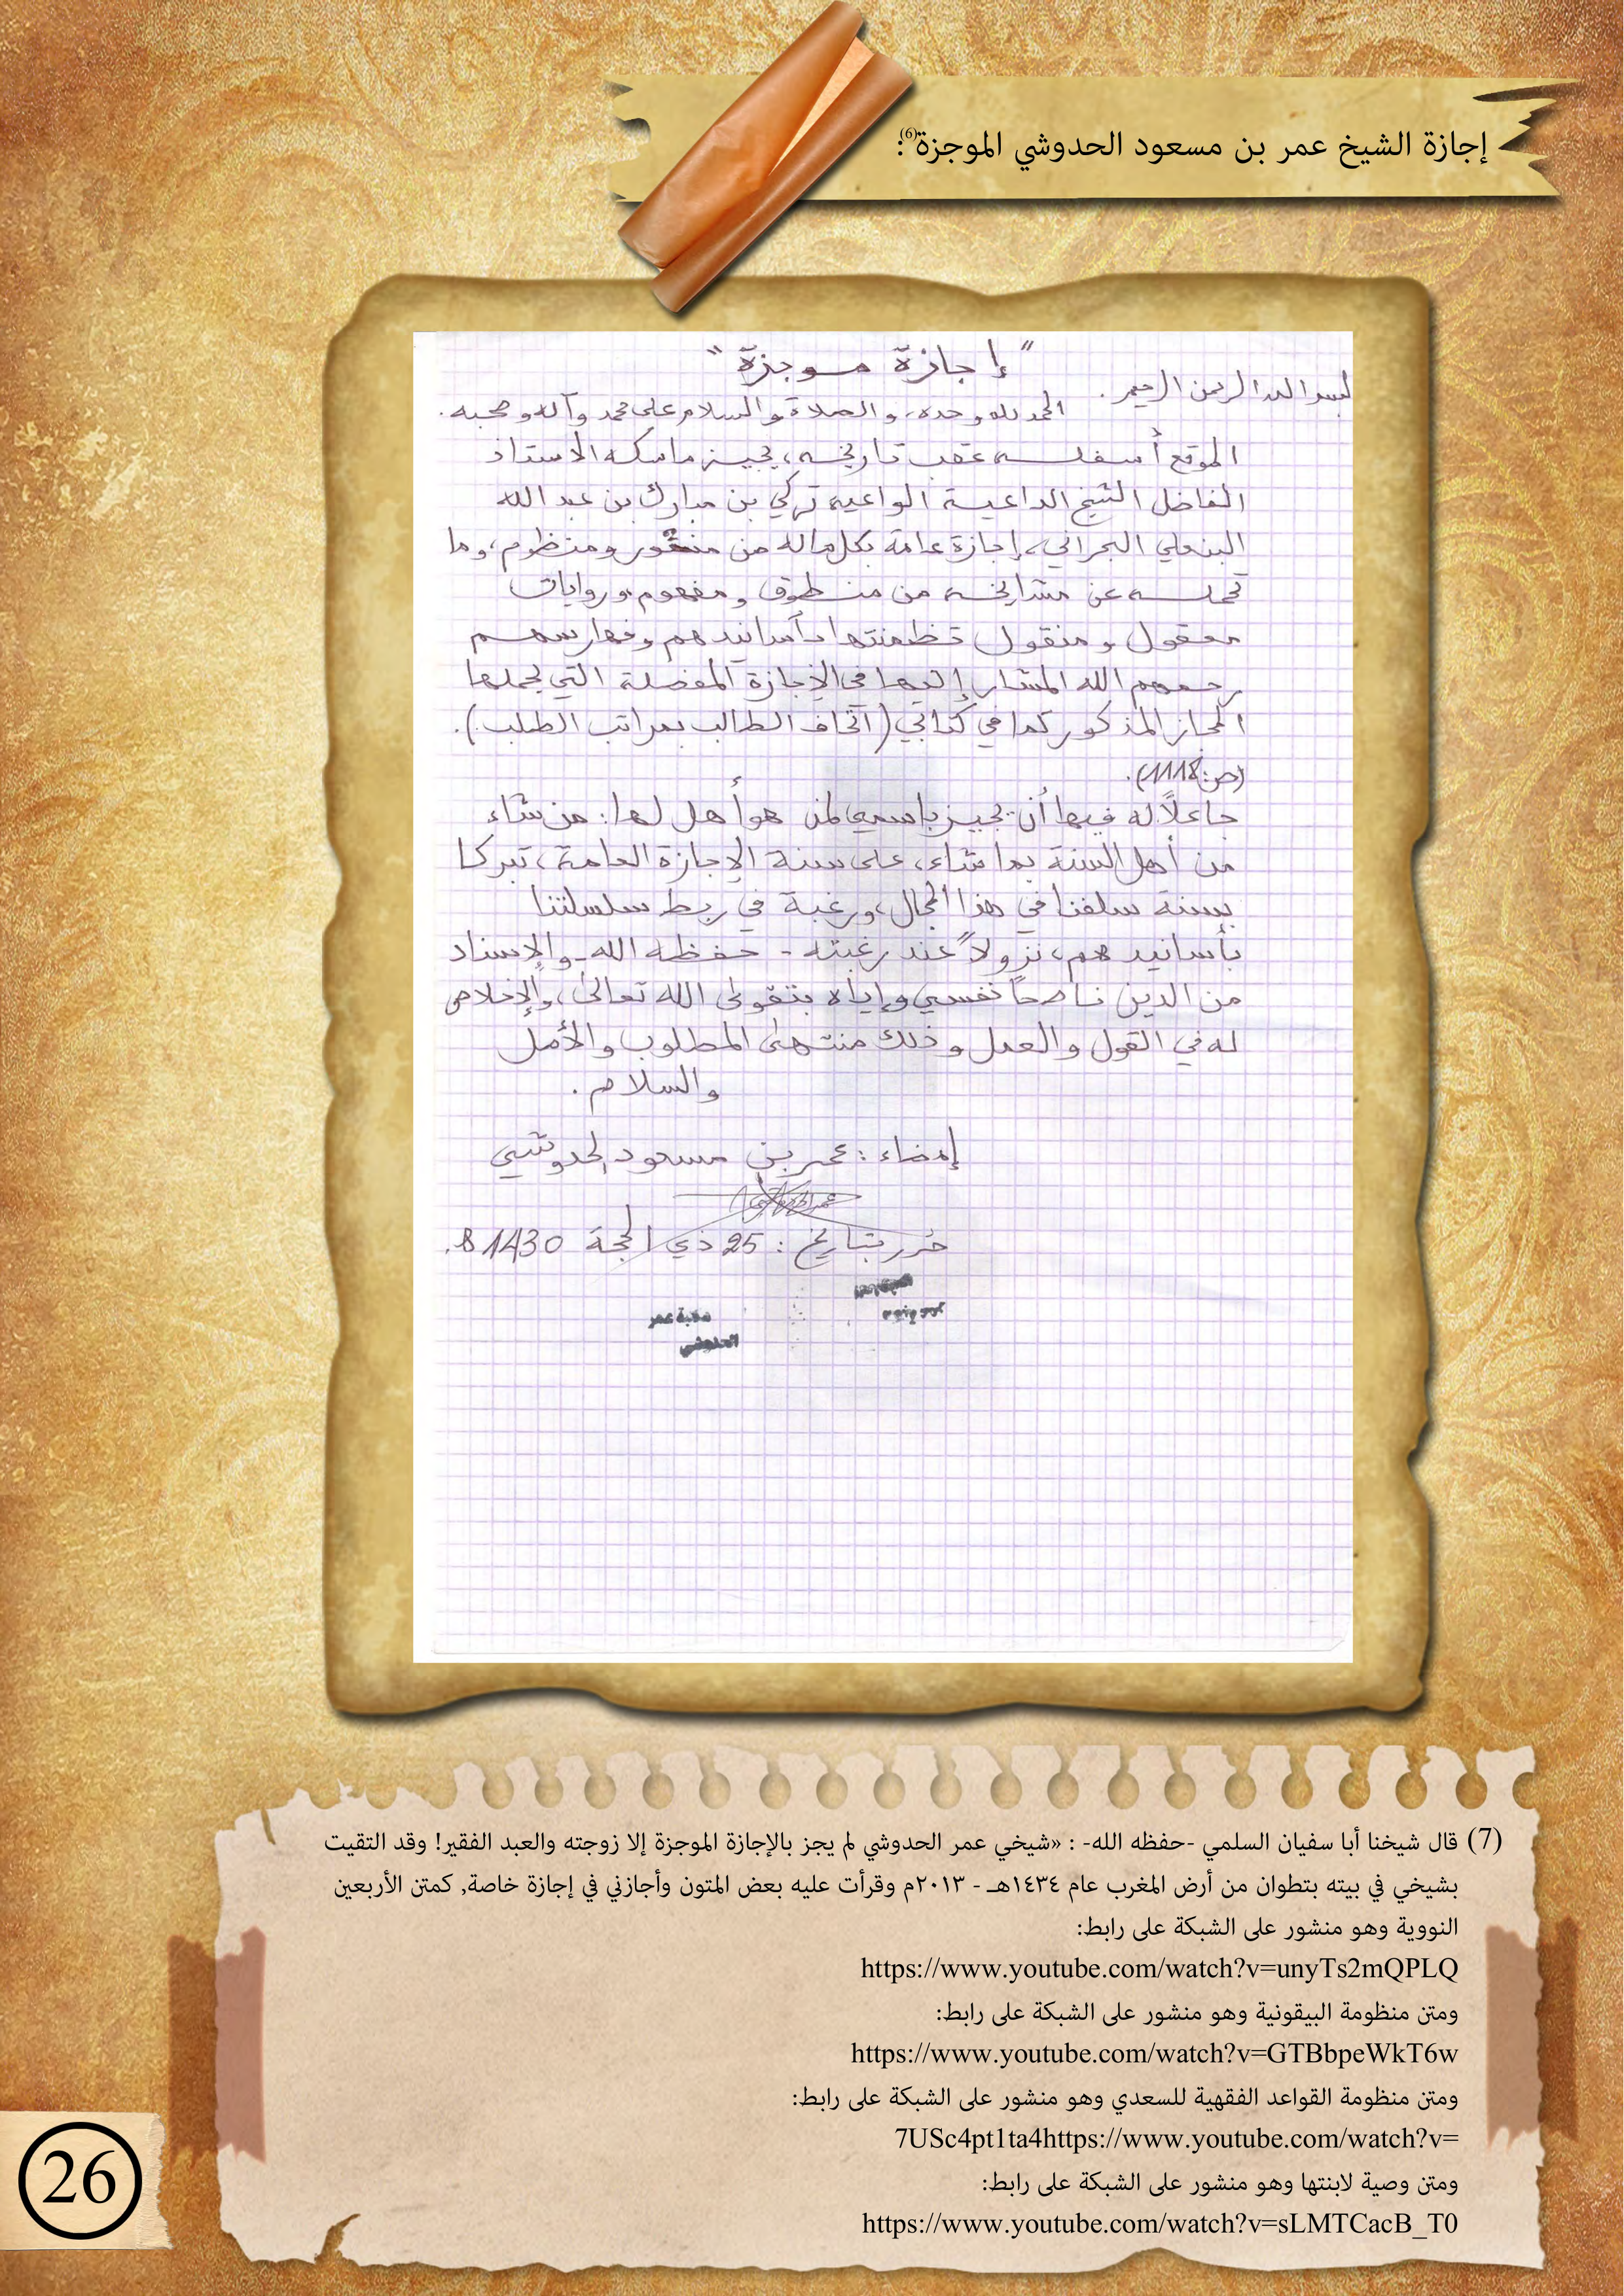 إجازة الشيخ عمر بن مسعود الحدوشي الموجزة(6):
"إجازة موجزة"
بسم الله الرحمن الرحيم.
الحمد لله وحده، والصلاة والسلام على محمد وآله وصحبه.
الموقع أسفله عقب تاريخه، يجيز ماسكه الاستاذ
الفاضل الشيخ الداعية الواعية تركي بن مبارك بن عبد الله
البنعلي البحراني، إجازة عامة بكل ماله من منثور ومنظوم، وما
تحمله عن مشايخه من منطوق ومفهوم، وروايات
معقول ومنقول تضمنتها أسانيدهم وفهارسهم
رحمهم الله المشار إليها في الإجازة المفصلة التي يحملها
المجاز المذكور كما في كتابي (اتحاف الطالب بمراتب الطلب).
(ص:1118).
جاعلاً له فيها أن يجيز باسمي لمن هو أهل لها: من شاء
من أهل السنة بما شاء، على سنة الإجازة العامة، تبركا
بسنة سلفنا في هذا المجال، ورغبة في ربط سلسلتنا
بأسانيدهم، نزولاً عند رغبته - حفظه الله - والإسناد
من الدين ناصحاً نفسي وإياه بتقوى الله تعالى، والإخلاص
له في القول والعمل وذلك منتهى المطلوب والأمل
والسلام.
إمضاء: عمر بن مسعود الحدوشي
حُرر بتاريخ: 25 ذي الحجة 1430 ه.
عمر
الحدوشي
(7) قال شيخنا أبا سفيان السلمي -حفظه الله- : «شيخي عمر الحدوشي لم يجز بالإجازة الموجزة إلا زوجته والعبد الفقير! وقد التقيت
بشيخي في بيته بتطوان من أرض المغرب عام ١٤٣٤هـ - ٢٠١٣م وقرأت عليه بعض المتون وأجازني في إجازة خاصة, كمتن الأربعين
النووية وهو منشور على الشبكة على رابط:
https://www.youtube.com/watch?v=unyTs2mQPLQ
ومتن منظومة البيقونية وهو منشور على الشبكة على رابط:
https://www.youtube.com/watch?v=GTBbpeWkT6w
ومتن منظومة القواعد الفقهية للسعدي وهو منشور على الشبكة على رابط:
7USc4pt1ta4https://www.youtube.com/watch?v=
ومتن وصية لابنتها وهو منشور على الشبكة على رابط:
https://www.youtube.com/watch?v=sLMTCacB_T0
26